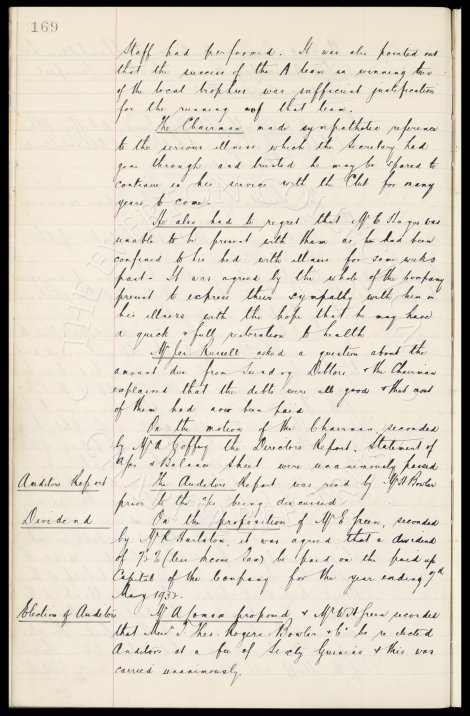 169
Staff had performed. It was also pointed out
that the success of the A team in winning two
of the local trophies was sufficient justification
for the running of that team.
The Chairman made sympathetic reference
to the serious illness which the Secretary had
gone through and trusted he may be spared to
continue in his service with the Club for many
years to come.
He also had to regret that Mr C Hayes was
unable to be present with them as he had been
confined to his bed with illness for some weeks
past. It was agreed by the whole of the Company
present to express their sympathy with him in
his illness with the hope that he may have
a quick & full restoration to health
Mr Jos Russell asked a question about the
amount due from Sundry Debtors & the Chairman
explained that the debts were all good & that most
of them had now been paid
On the motion of the Chairman, seconded
by Mr A the Directors Report, Statement of
A/cs & Balance Sheet were unanimously passed
Auditors Report
The Auditors Report was read by Mr H Bowler
prior to the a/cs being discussed
Dividend
On the proposition of Mr E Green, seconded
by Mr R , it was agreed that a dividend
of 7½% (less Income Tax) be paid on the paid up
Capital of the Company for the year ending 7th
May 1932.
Election of Auditors
Mr A proposed & Mr W H Green seconded
that Messrs Thos. Rogers Bowler & Co be re elected
Auditors at a fee of Sixty Guineas & this was
carried unanimously.